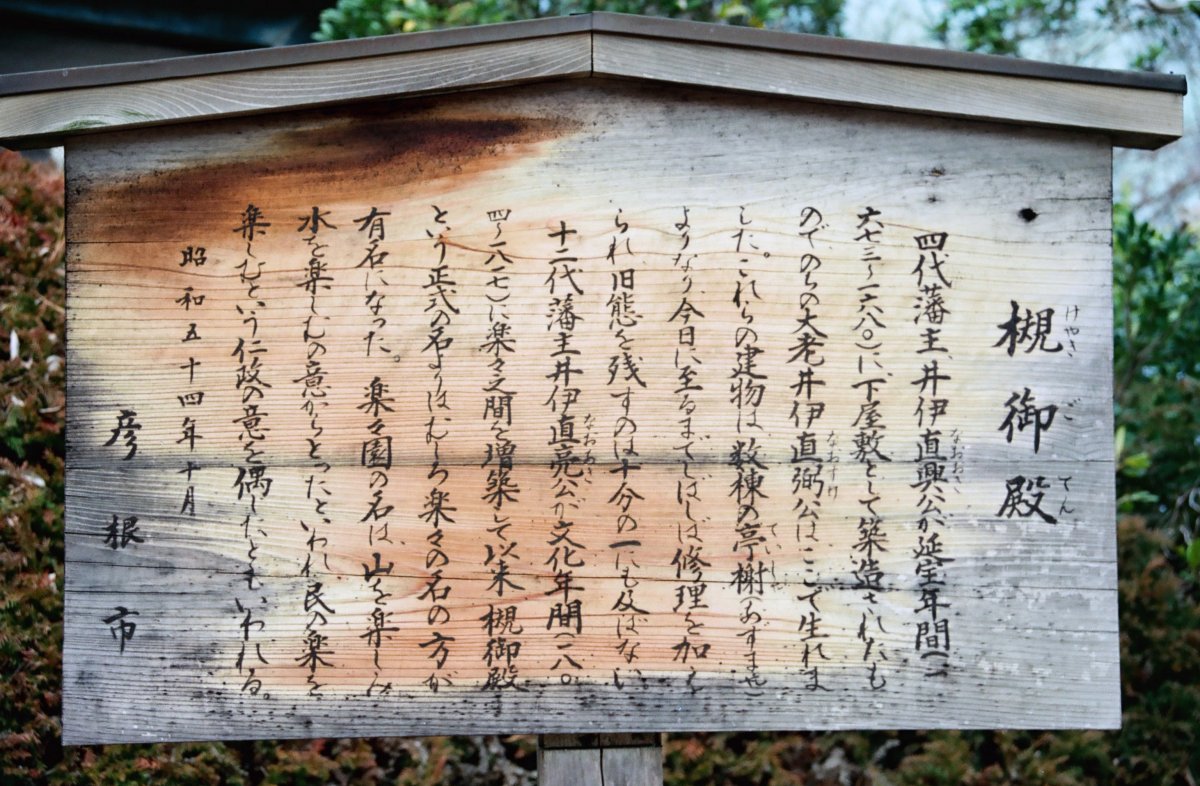 けやきごてん
槻御殿
なおおき
四代藩主、井伊直興公が延宝年間(一
六七三〜一六八〇)に、下屋敷として築造されたも
なおすけ
ので、のちの大老井伊直弼公は、ここで生れま
ていしゃ
した。これらの建物は、数棟の亭榭(あずまや)
よりなり、今日に至るまでしばしば修理を加え
られ、旧態を残すのは十分の一にも及ばない。
なおあき
十二代藩主井伊直亮公が文化年間(一八〇
四〜一八一七)に楽々之間を増築して以来、槻御殿
という正式の名よりはむしろ楽々の名の方が
有名になった。楽々園の名は、山を楽しみ
水を楽しむの意からとったといわれ民の楽を
楽しむという仁政の意を偶したともいわれる。
昭和五十四年十月
彦根市